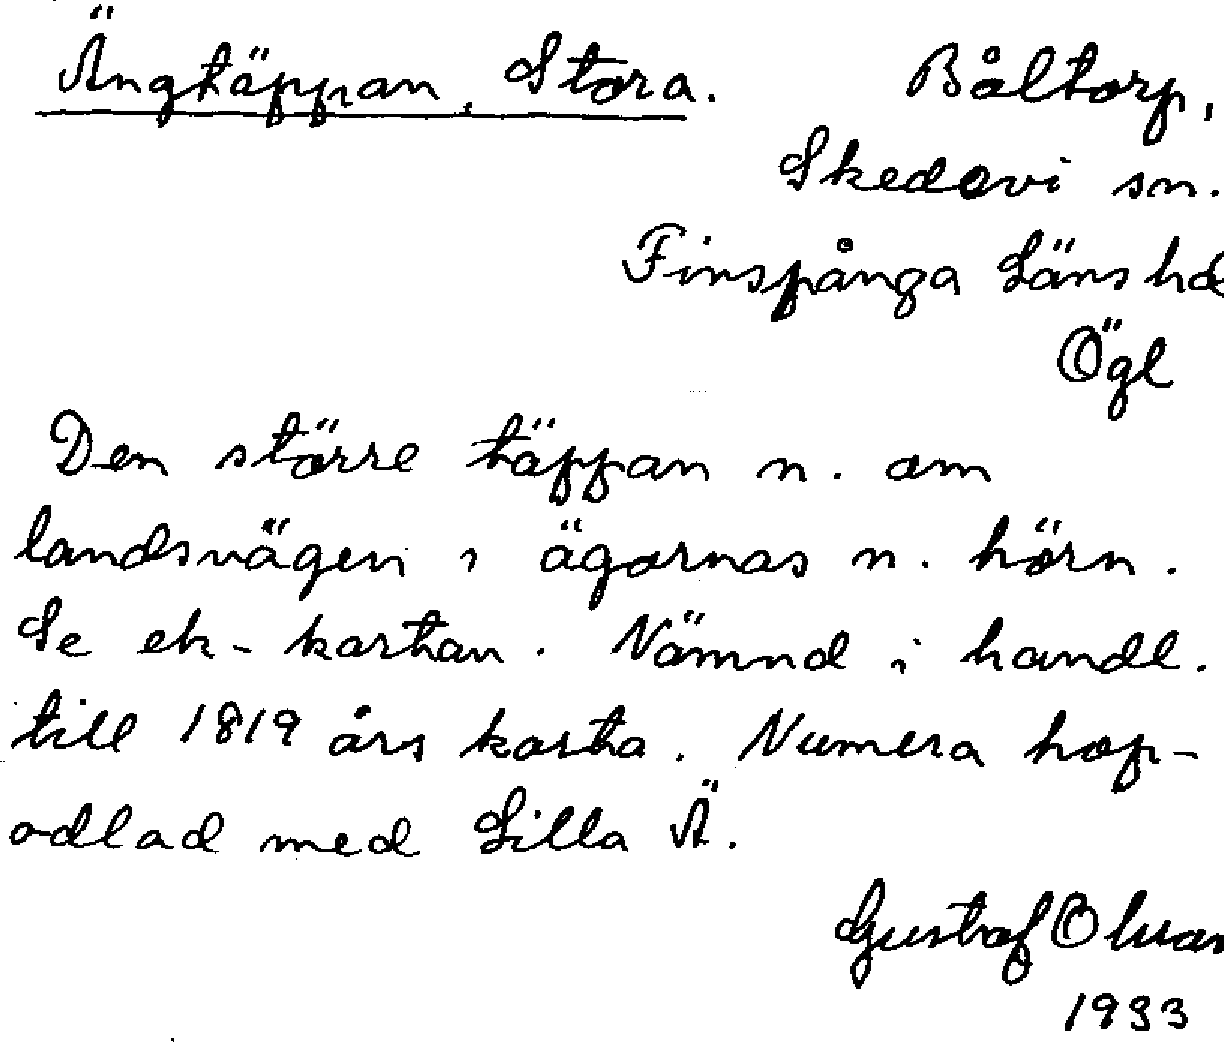 Ängtäppan, Stora. Båltorp,
Skedevi sn.
Finspånga Läns hd
Ögl
Den större täppan n. om
landsvägen i ägornas n. hörn.
Se ek-kartan. Nämnd i handl.
till 1819 års karta. Numera hop-
odlad med Lilla Ä.
Gustaf Olsson
1933